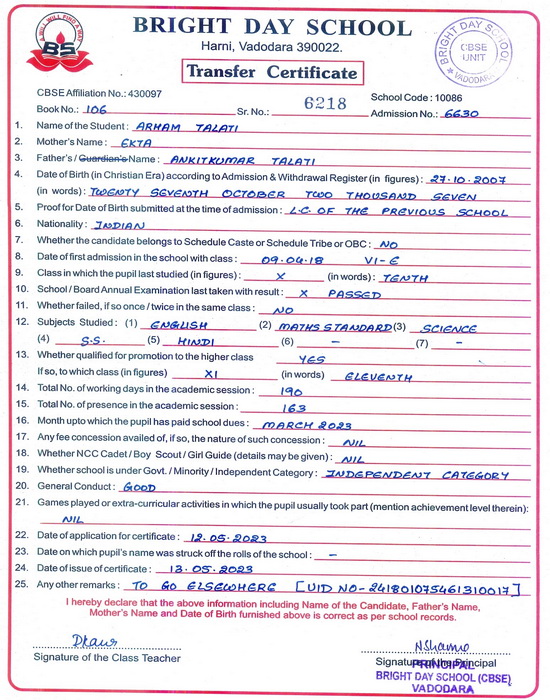 A WILL WILL FIND A WAY
BS
BRIGHT DAY SCHOOL
Harni, Vadodara 390022.
BRIGHT DAY SCHOOL
CBSE
UNIT
VADODARA
Transfer Certificate
CBSE Affiliation No.: 430097
School Code : 10086
Book No.: 106 Sr. No.: 6218 Admission No.: 6630
1. Name of the Student : ARHAM TALATI
2. Mother's Name : EKTA
3. Father's / Guardian's Name : ANKITKUMAR TALATI
4. Date of Birth (in Christian Era) according to Admission & Withdrawal Register (in figures) : 27-10-2007
(in words) : TWENTY SEVENTH OCTOBER TWO THOUSAND SEVEN
5. Proof for Date of Birth submitted at the time of admission : L.C OF THE PREVIOUS SCHOOL
6. Nationality : INDIAN
7. Whether the candidate belongs to Schedule Caste or Schedule Tribe or OBC : NO
8. Date of first admission in the school with class : 09-04-18 VI-E
9. Class in which the pupil last studied (in figures) : X (in words) : TENTH
10. School / Board Annual Examination last taken with result : X PASSED
11. Whether failed, if so once / twice in the same class : NO
12. Subjects Studied : (1) ENGLISH (2) MATHS STANDARD (3) SCIENCE
(4) S.S. (5) HINDI (6) - (7) -
13. Whether qualified for promotion to the higher class YES
If so, to which class (in figures) XI (in words) ELEVENTH
14. Total No. of working days in the academic session : 190
15. Total No. of presence in the academic session : 163
16. Month upto which the pupil has paid school dues : MARCH 2023
17. Any fee concession availed of, if so, the nature of such concession : NIL
18. Whether NCC Cadet / Boy Scout / Girl Guide (details may be given) : NIL
19. Whether school is under Govt. / Minority / Independent Category : INDEPENDENT CATEGORY
20. General Conduct : GOOD
21. Games played or extra-curricular activities in which the pupil usually took part (mention achievement level therein):
NIL
22. Date of application for certificate : 12-05-2023
23. Date on which pupil's name was struck off the rolls of the school : -
24. Date of issue of certificate : 13-05-2023
25. Any other remarks : TO GO ELSEWHERE [UID NO-241801075461310017]
I hereby declare that the above information including Name of the Candidate, Father's Name,
Mother's Name and Date of Birth furnished above is correct as per school records.
Signature of the Class Teacher
Signature of the Principal
PRINCIPAL
BRIGHT DAY SCHOOL (CBSE)
VADODARA